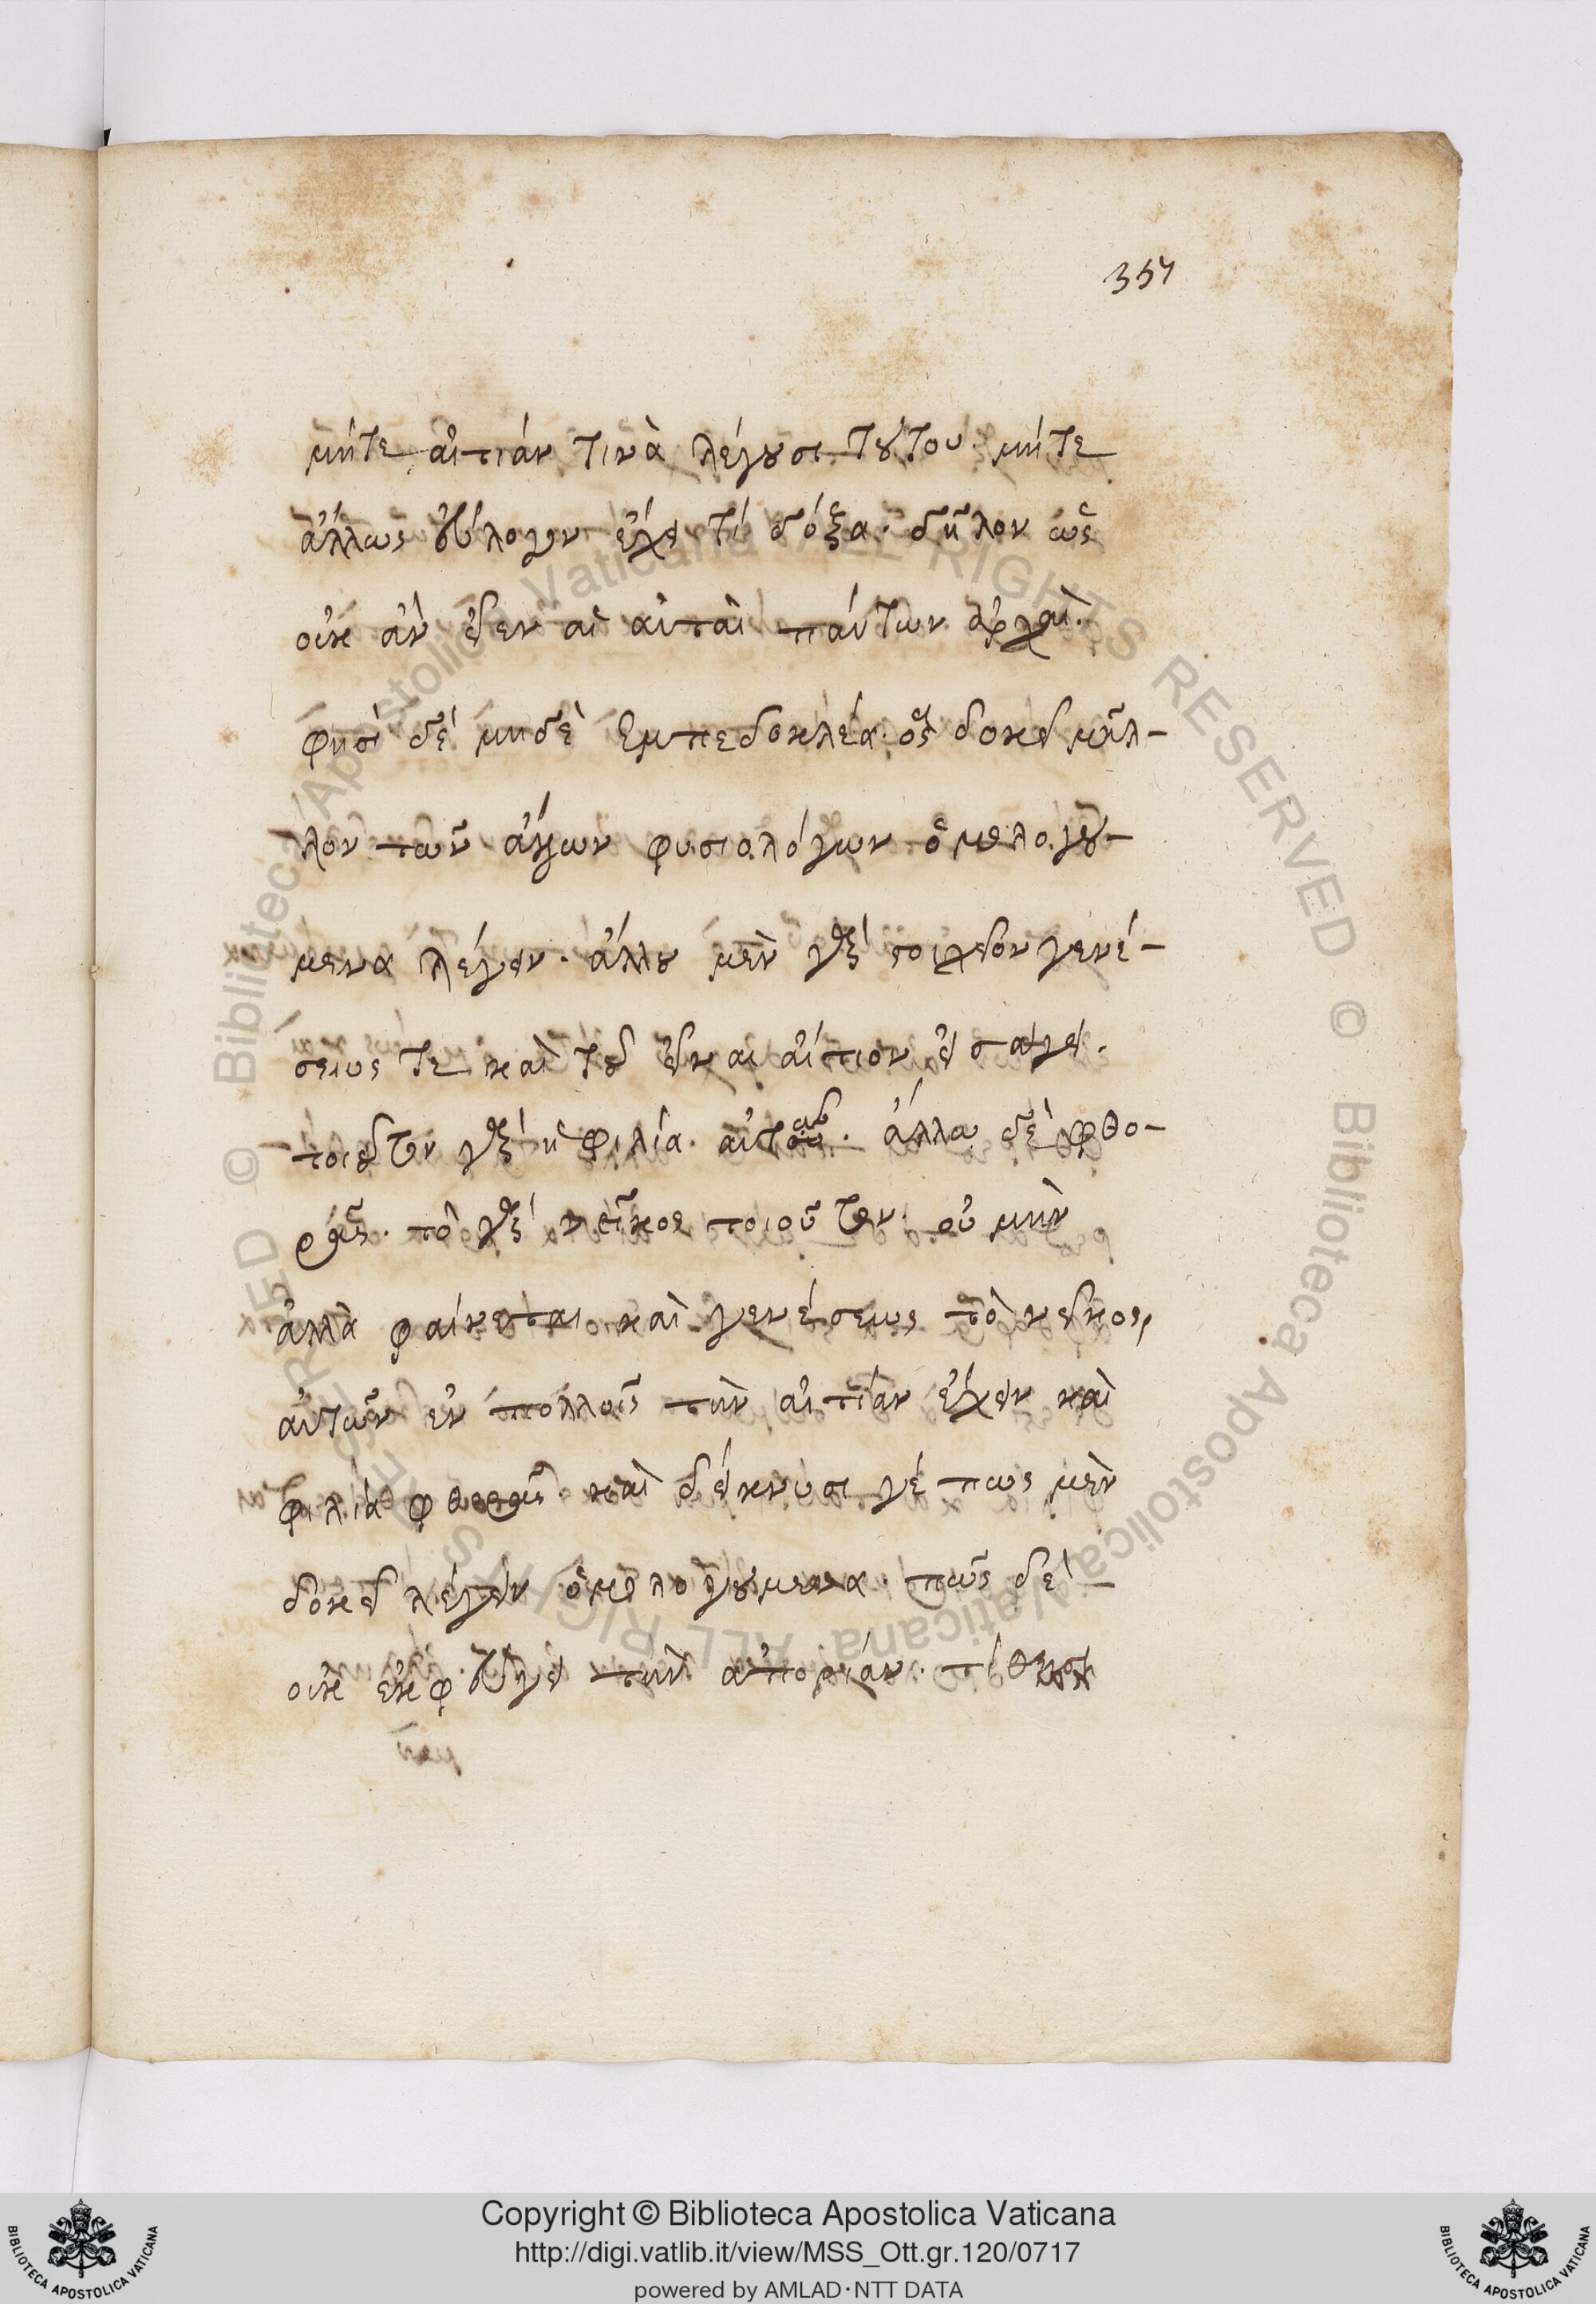 357
μήτε αἰτίαν τινὰ λέγουσι τούτου· μήτε
ἄλλως εὔλογον ἔχει τί δόξα· δῆλον ὡς
οὐκ ἂν εἶεν αἱ αὐταὶ πάντων ἀρχαὶ.
φησὶ δὲ μηδὲ Ἐμπεδοκλέα· ὃς δοκεῖ μᾶλ-
λον τῶν ἄλλων φυσιολόγων ὁμολογού-
μενα λέγειν· ἄλλου μὲν γὰρ στοιχεῖον γενέ-
σεως τε καὶ τοῦ εἶναι αἴτιον εἰσάγει.
ποιεῖ γὰρ ἡ φιλία. αὐτοῦ. ἄλλω δὲ φθο-
ρᾶς. τὸ γὰρ νεῖκος ποιοῦ οὐ μὴν
ἀλλὰ φαίνεται καὶ γενέσεως τὸ νεῖκος,
αὐτῶν ἐν πολλοῖς τὴν αἰτίαν ἔχειν καὶ
φιλία φθορᾶς. καὶ δείκνυσι γέ πως μὲν
δοκεῖ λέγειν ὁμολογούμενα. πῶς δὲ
οὐκ ἐκφεύγει τὴν ἀπορίαν. τίθησι
Copyright © Biblioteca Apostolica Vaticana
http://digi.vatlib.it/view/MSS_Ott.gr.120/0717
powered by AMLAD·NTT DATA
BIBLIOTECA APOSTOLICA VATICANA
BIBLIOTECA APOSTOLICA VATICANA
© Biblioteca Apostolica Vaticana ALL RIGHTS RESERVED © Biblioteca Apostolica Vaticana ALL RIGHTS RESERVED